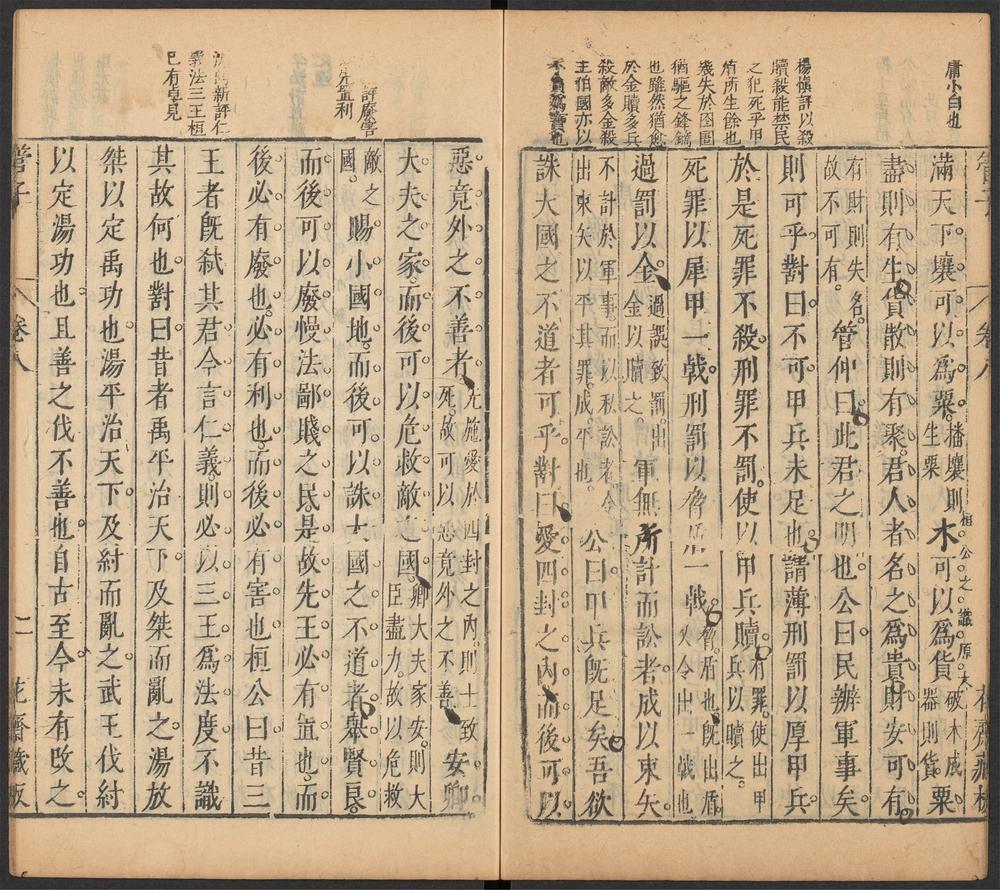 庸小白也
楊慎評以殺
贖殺能禁民
之犯死乎甲
所生餘也
幾失於囹圄
猶驅之鋒鏑
也雖然猶愈
於金贖多兵
殺敵多金殺
主伯國亦以
管子
卷八
花齋藏板
滿天下壤可以爲粟
播壤則
生粟
木可以爲貨
破木成
器則貨
粟
桓公之識原大
盡則有生貨散則有聚君人者名之爲貴財安可有
有財則失名
故不可有
管仲曰此君之明也公曰民辦軍事矣
則可乎對曰不可甲兵未足也請薄刑罰以厚甲兵
於是死罪不殺刑罪不罰使以甲兵贖
有罪使出甲
兵以贖之
死罪以犀甲一戟刑罰以脅盾一戟
脅盾也旣出盾
又令出一戟也
過罰以金
過誤致罰出
金以贖之
軍無所計而訟者成以束矢
不計於軍事而以私訟者令
出束矢以平其罪成平也
公曰甲兵旣足矣吾欲
誅大國之不道者可乎對曰愛四封之內而後可以
惡竟外之不善者
先施愛於四封之內則士致
死故可以惡竟外之不善
安卿
大夫之家而後可以危救敵之國
卿大夫家安則大
臣盡力故以危救
敵之
國
賜小國地而後可以誅大國之不道者舉賢良
而後可以廢慢法鄙賤之民是故先王必有置也而
後必有廢也必有利也而後必有害也桓公曰昔三
王者旣弑其君今言仁義則必以三王爲法度不識
其故何也對曰昔者禹平治天下及桀而亂之湯放
桀以定禹功也湯平治天下及紂而亂之武王伐紂
以定湯功也且善之伐不善也自古至今未有改之
先置利
新評仁
義法三王桓
已有卓見
管子
卷八
二
花齋藏板